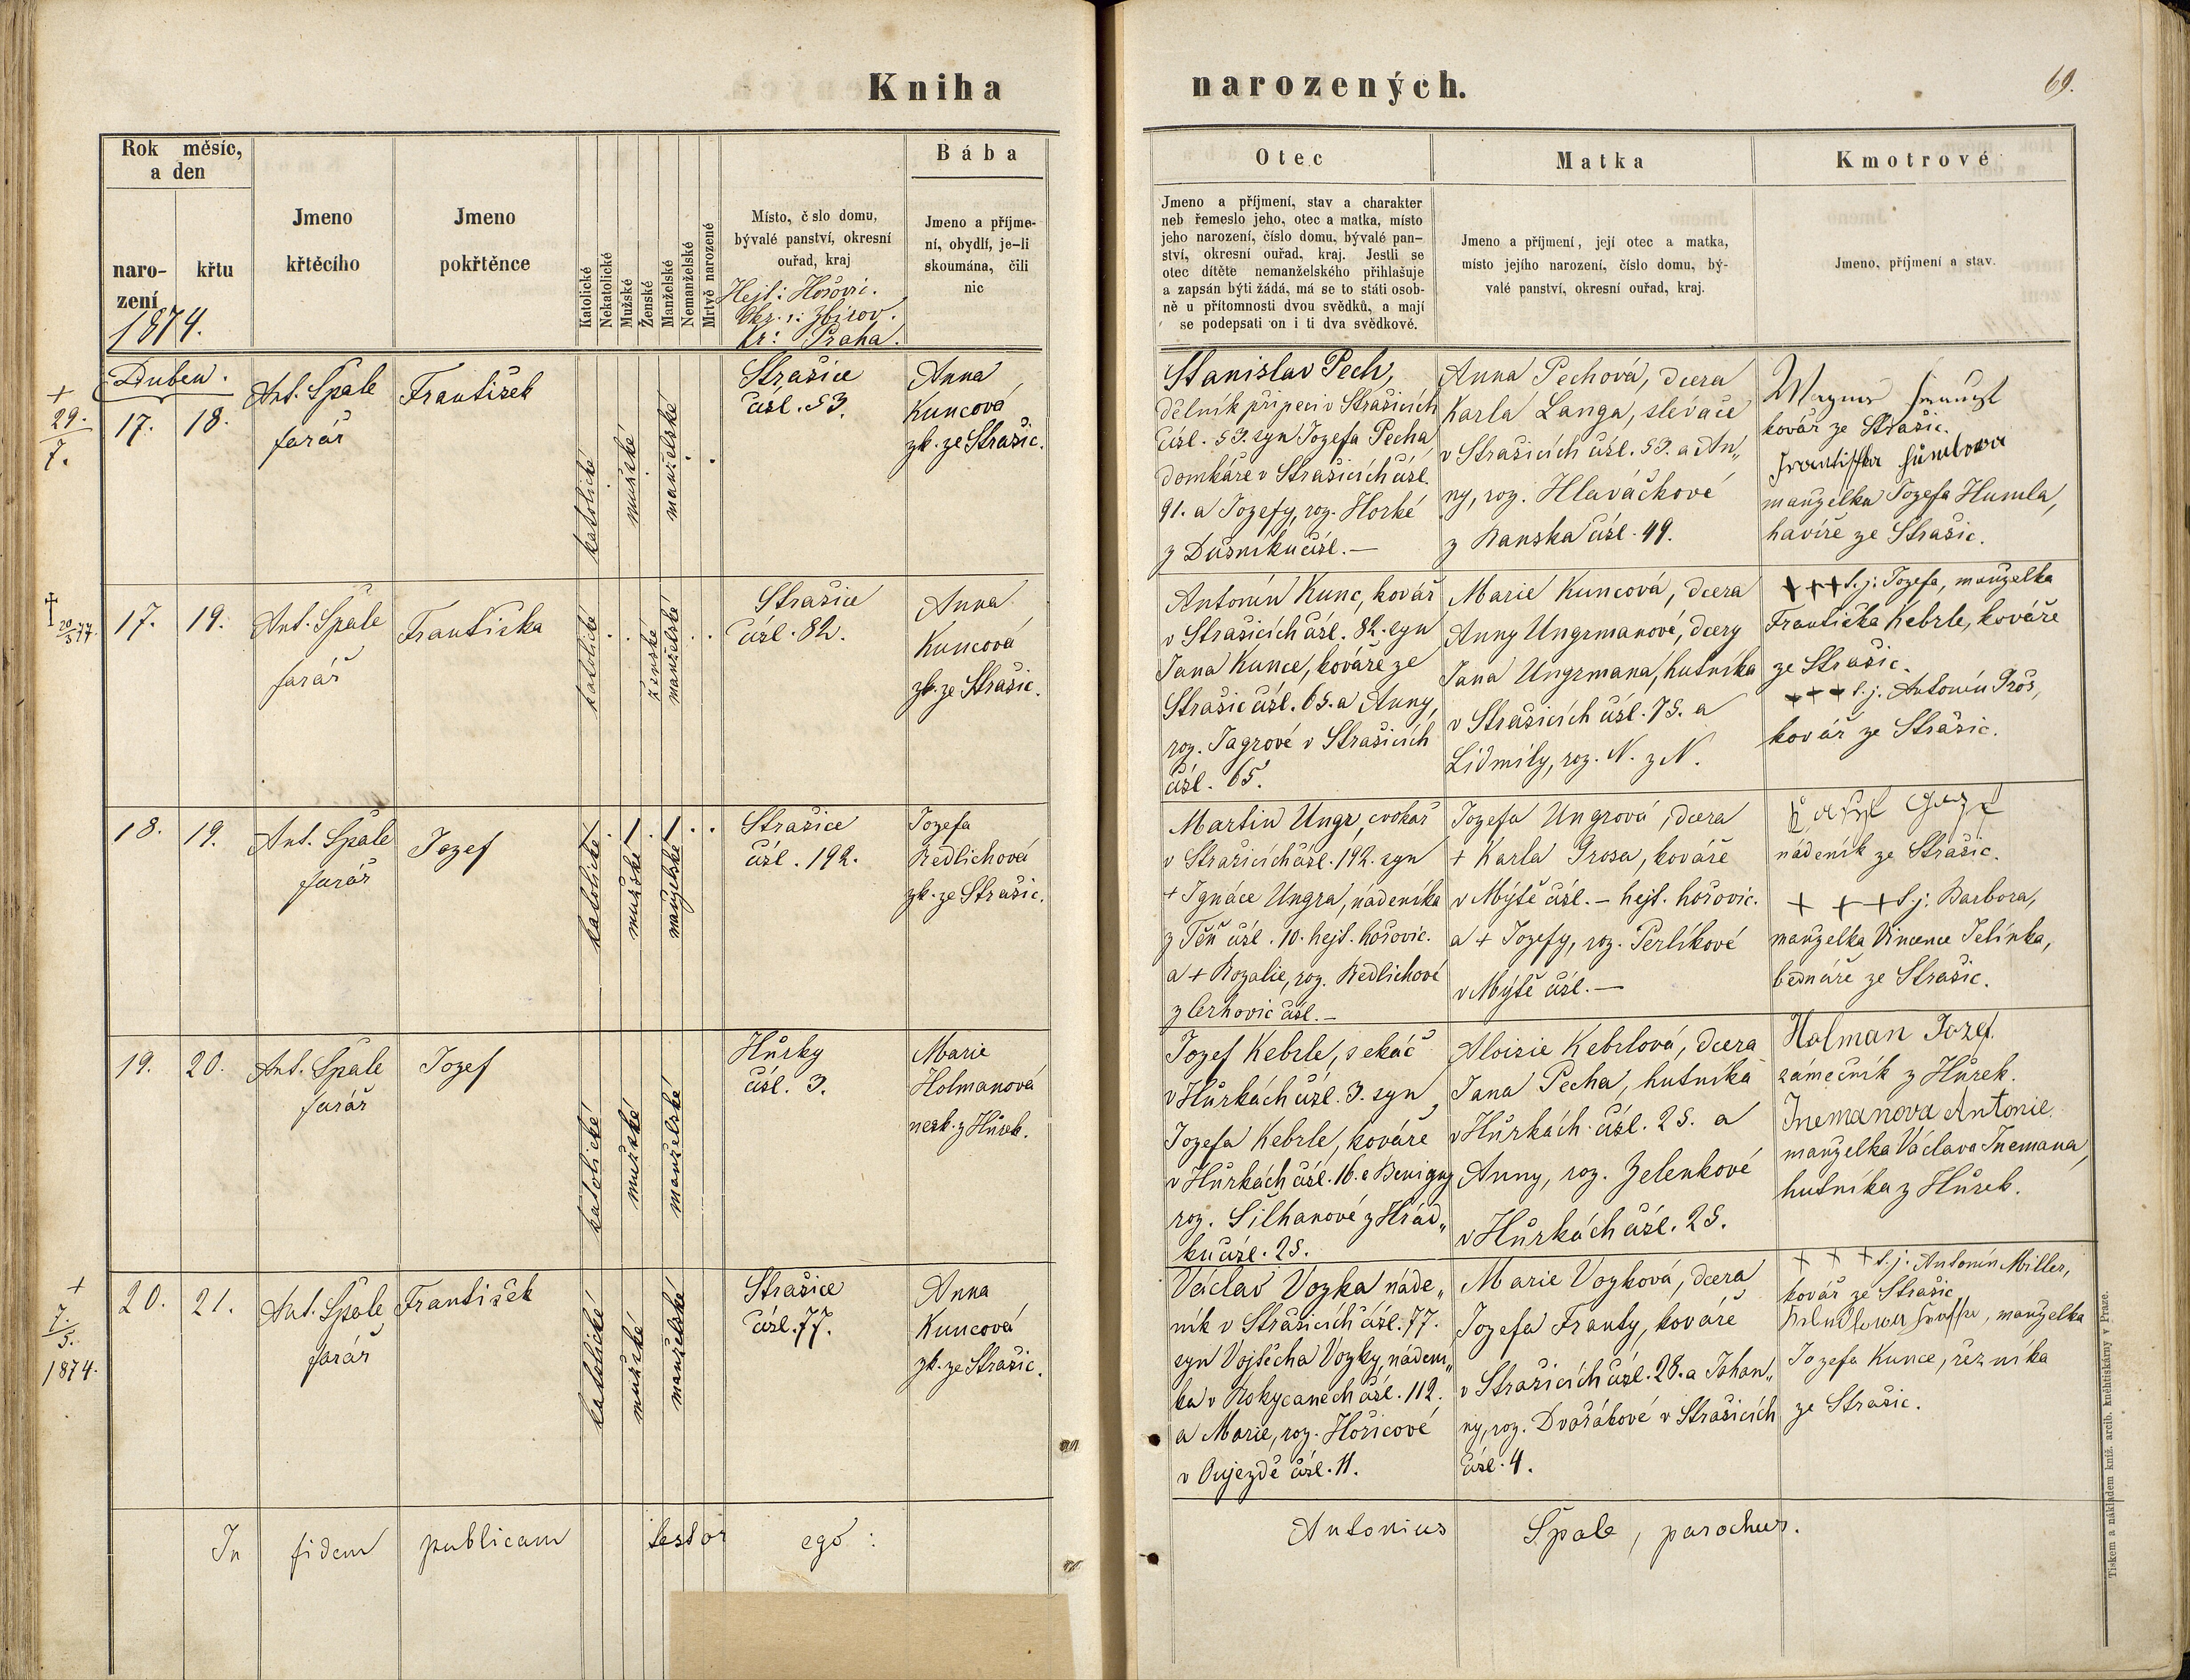 Kniha
narozených.
69.
Rok měsíc,
a den
naro-
zení
křtu
1874.
Jmeno
křtěcího
Jmeno
pokřtěnce
Katolické
Nekatolické
Mužské
Ženské
Manželské
Nemanželské
Mrtvě narozené
Místo, č slo domu,
bývalé panství, okresní
ouřad, kraj
Hejt: Hořovic.
Okr. s: Zbirov.
kr: Praha.
Bába
Jmeno a příjme-
ní, obydlí, je-li
skoumána, čili
nic
Otec
Jmeno a příjmení, stav a charakter
neb řemeslo jeho, otec a matka, místo
jeho narození, číslo domu, bývalé pan-
ství, okresní ouřad, kraj. Jestli se
otec dítěte nemanželského přihlašuje
a zapsán býti žádá, má se to státi osob-
ně u přítomnosti dvou svědků, a mají
se podepsati on i ti dva svědkové.
Matka
Jmeno a příjmení, její otec a matka,
místo jejího narození, číslo domu, bý-
valé panství, okresní ouřad, kraj.
Kmotrové
Jmeno, příjmení a stav.
Duben.
+
29.
7.
17.
18.
Ant. Špale
farář
František
katolické
mužské
manželské
Strašice
čísl. 53.
Anna
Kuncová
zk. ze Strašic.
Stanislav Pech,
dělník při peci v Strašicích
čísl. 53. syn Jozefa Pecha
domkáře v Strašicích čísl.
91. a Jozefy, roz. Horké
z Dušníku čísl. —
Anna Pechová, dcera
Karla Langa, slévače
v Strašicích čísl. 53. a An„
ny, roz. Hlaváčkové
z Banska čísl. 49.
kovář ze Strašic.
manželka Jozefa Humla,
havíře ze Strašic.
†
20/5 77.
17.
19.
Ant. Špale
farář
Františka
katolické
ženské
manželské
Strašice
čísl. 82.
Anna
Kuncová
zk. ze Strašic.
Antonín Kunc, kovář
v Strašicích čísl. 82. syn
Jana Kunce, kováře ze
Strašic čísl. 65. a Anny,
roz. Jagrové v Strašicích
čísl. 65.
Marie Kuncová, dcera
Anny Ungrmanové, dcery
Jana Ungrmana, hutníka
v Strašicích čísl. 75. a
Lidmily, roz. N. z N.
+++ t. j: Jozefa, manželka
Františka Kebrle, kováře
ze Strašic.
+++ t. j. Antonín Gros,
kovář ze Strašic.
18.
19.
Ant. Špale
farář
Jozef
katolické
mužské
manželské
Strašice
čísl. 192.
Jozefa
Redlichová
zk. ze Strašic.
Martin Ungr, cvokař
v Strašicích čísl. 192. syn
+ Ignáce Ungra, nádeníka
z Těň čísl. 10. hejt. hořovic.
a + Rozalie, roz. Redlichové
z Cerhovic čísl. —
Jozefa Ungrová, dcera
+ Karla Grosa, kováře
v Mýtě čísl. — hejt. hořovic.
a + Jozefy, roz. Perlíkové
v Mýtě čísl. —
nádeník ze Strašic.
+ + + t. j: Barbora,
manželka Vincence Jelínka,
bednáře ze Strašic.
19.
20.
Ant. Špale
farář
Jozef
katolické
mužské
manželské
Hůrky
čísl. 3.
Marie
Holmanová
nezk. z Hůrek.
Jozef Kebrle, sekáč
v Hůrkách čísl. 3. syn
Jozefa Kebrle, kováře
v Hůrkách čísl. 16. a Benigny
roz. Šilhanové z Hrád„
ku čísl. 25.
Aloisie Kebrlová, dcera
Jana Pecha, hutníka
v Hůrkách čísl. 25. a
Anny, roz. Zelenkové
v Hůrkách čísl. 25.
Holman Jozef.
zámečník z Hůrek.
Jnemanova Antonie.
manželka Václava Jnemana,
hutníka z Hůrek.
+
7.
5.
1874.
20.
21.
Ant. Špale
farář
František
katolické
mužské
manželské
Strašice
čísl. 77.
Anna
Kuncová
zk. ze Strašic.
Václav Vozka náde„
ník v Strašicích čísl. 77.
syn Vojtěcha Vozky, nádení„
ka v Rokycanech čísl. 112.
a Marie, roz. Hořicové
v Oujezdě čísl. 11.
Marie Vozková, dcera
Jozefa Franty, kováře
v Strašicích čísl. 28. a Johan„
ny, roz. Dvořákové v Strašicích
čísl. 4.
+ + + t. j: Antonín Miller,
kovář ze Strašic
manželka
Jozefa Kunce, řezníka
ze Strašic.
In fidem publicam testor ego :
Antonius Špale, parochus.
Tiskem a nákladem kníž. arcib. kněhtiskárny v Praze.